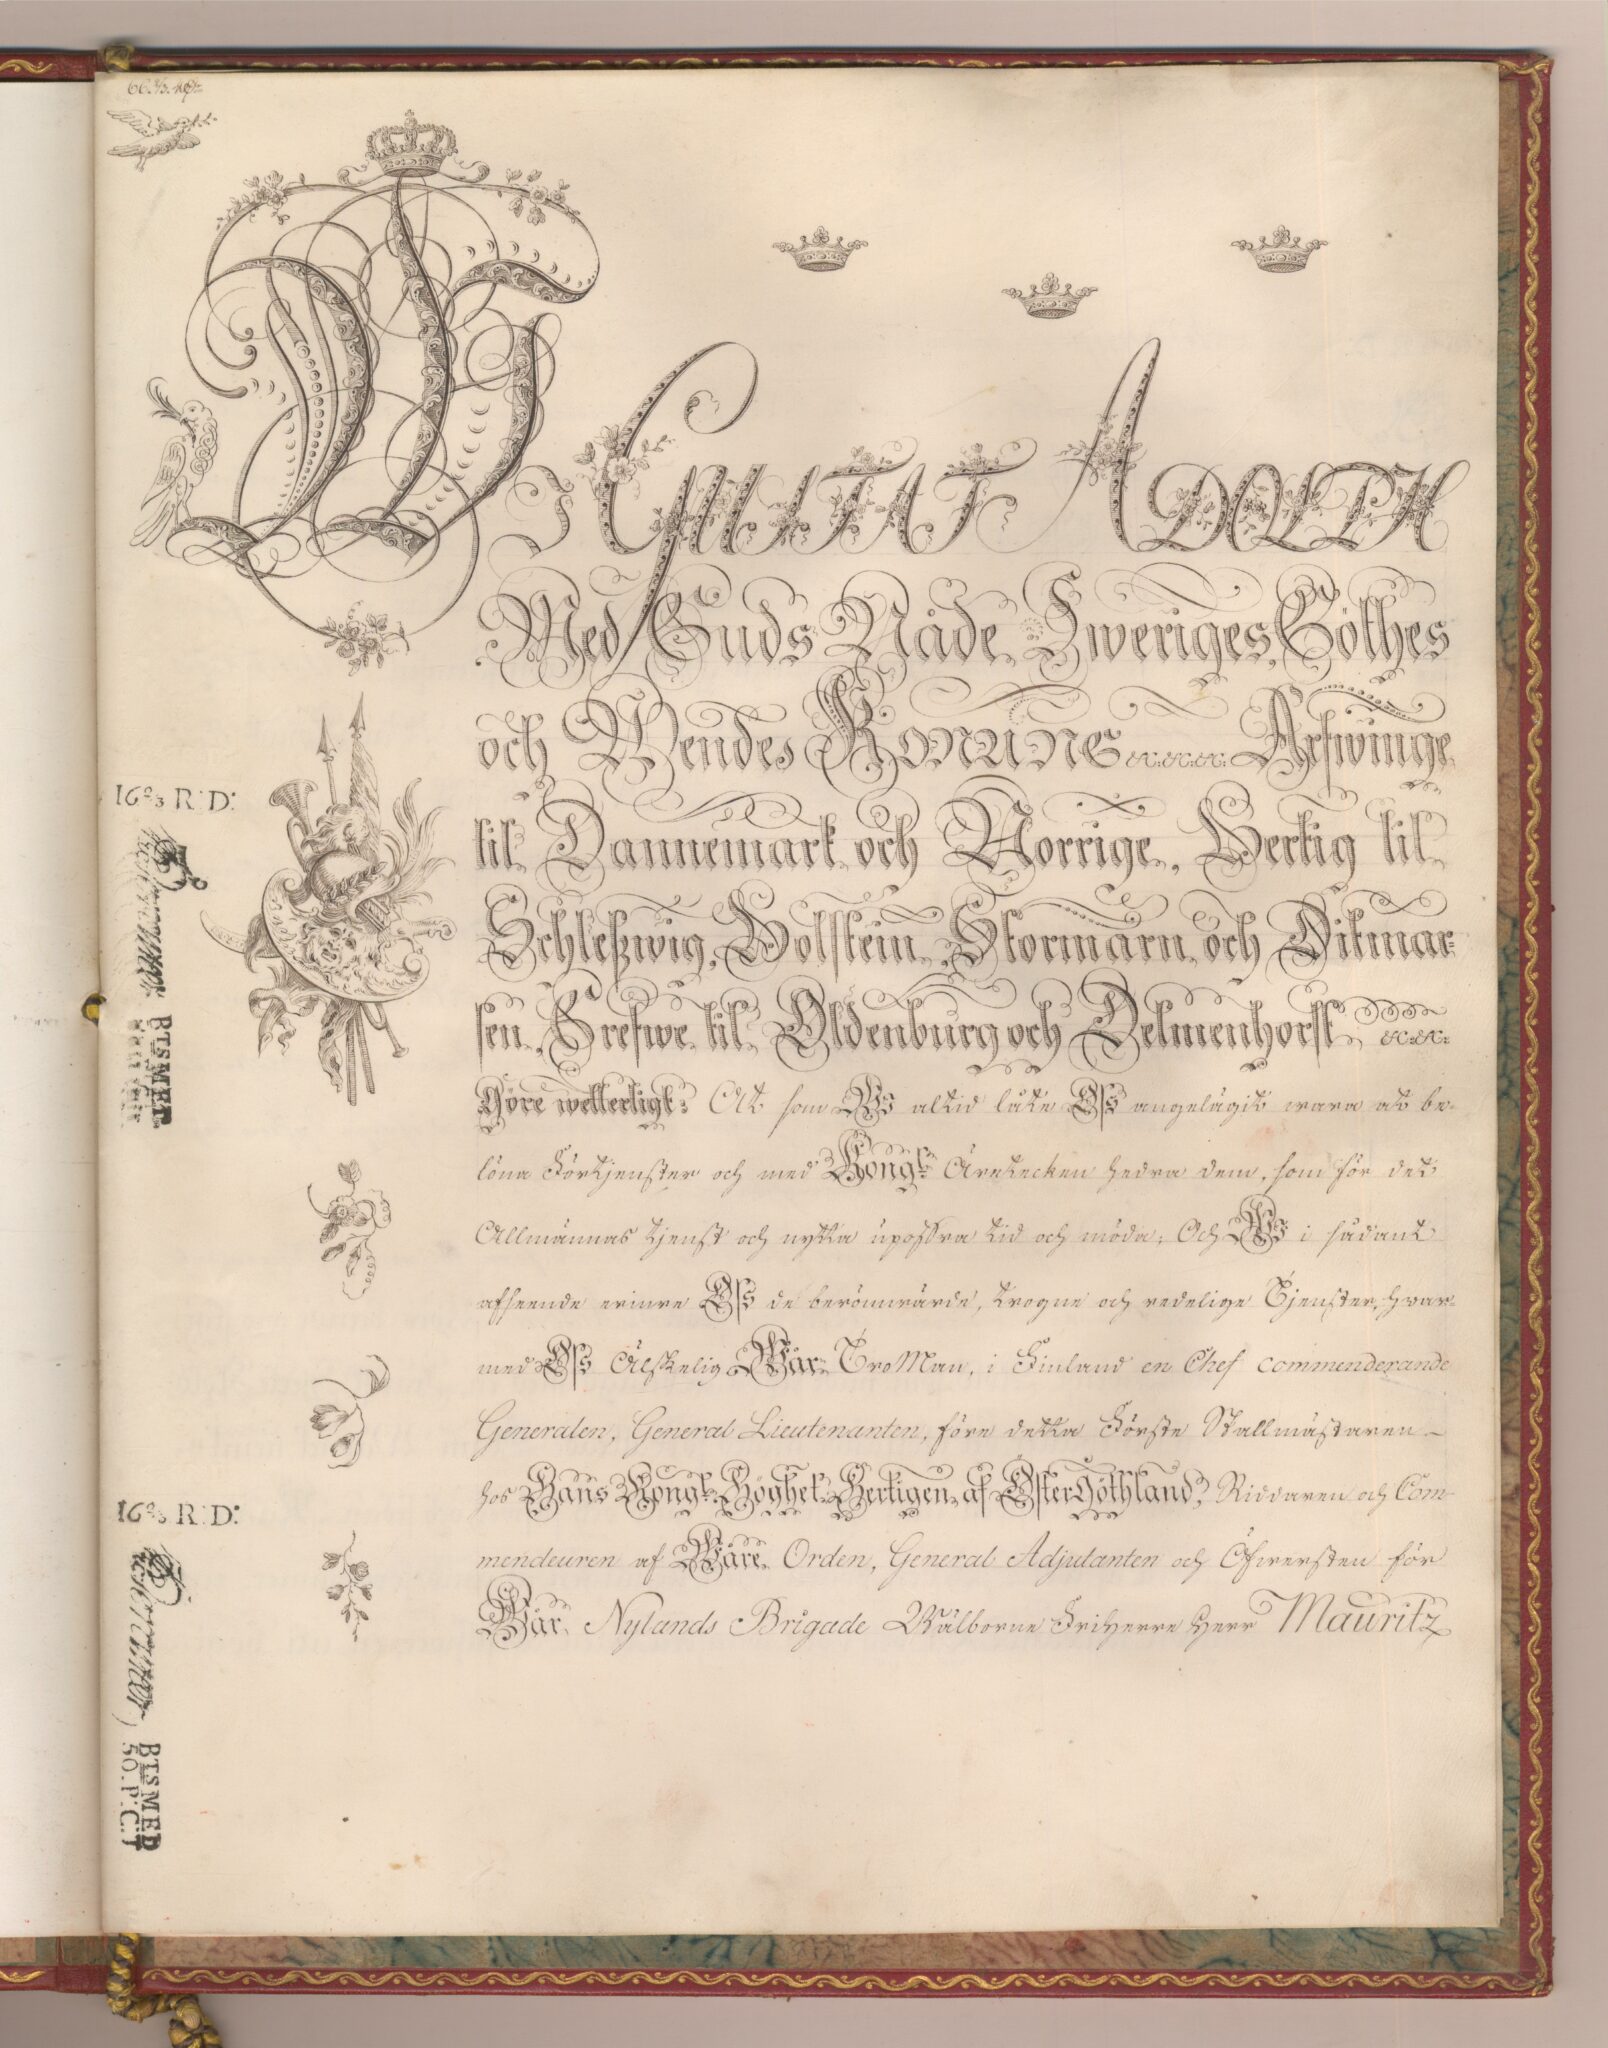 66 2/3
WI GUSTAF ADOLPH
Med Guds Nåde, Sweriges, Göthes
och Wendes KONUNG &c. &c. &c. Arfwinge
til Dannemark och Norrige, Hertig til
Schleßwig, Holstein, Stormarn och Ditmar-
sen, Grefwe til Oldenburg och Delmenhorst &c. &c.
Göre wetterligt: At som Wi altid låte Oss angelägit wara at be-
löna Förtjenster och med Kongl. Äretecken hedra dem, som för det
Allmännas tjenst och nytta upoffra tid och möda; Och Wi i sådant
afseende erinre Oss de berömwärde, trogne och redelige Tjenster, hwar-
med Oss Älskelig Wår Tro Man, i Finland en Chef commenderande
Generalen, General Lieutenanten, före detta Förste Stallmästaren
hos Hans Kongl. Höghet Hertigen af ÖsterGöthland, Riddaren och Com-
mendeuren af Wåre Orden, General Adjutanten och Öfwersten för
Wår Nylands Brigade Wälborne FriHerre Herr Mauritz
16 2/3 R: D:
BTSMED
16 2/3 R: D:
BTSMED
50. P: C: T